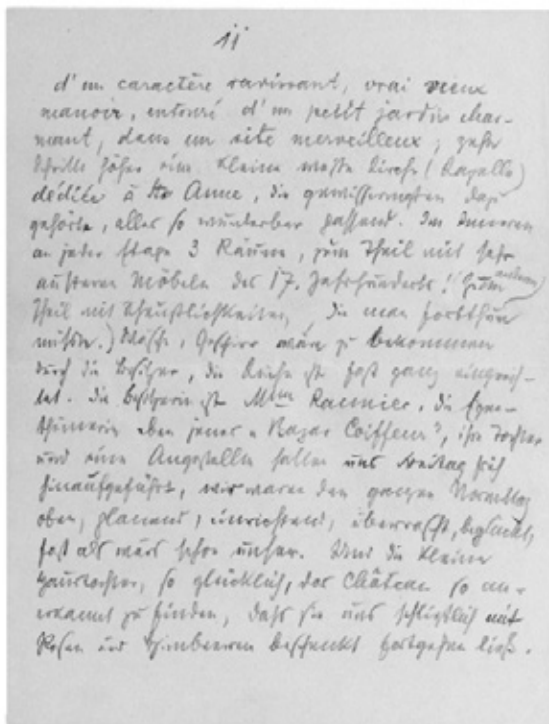 ii
d'un caractère ravissant, vrai vieux
manoir, entouré d'un petit jardin char-
mant, dans un site merveilleux; zehn
Schritt höher eine kleine weiße Kirche (Kapelle)
dédiée à Ste Anne, die gewissermaßen dazu
gehörte, alles so wunderbar passend. Im Inneren
an jeder Etage 3 Räume, zum Theil mit sehr
Möbeln des 17. Jahrhunderts! (zum anderen
Theil mit Scheußlichkeiten, die man fortthun
müßte.) Wäsche, Geschirr wäre zu bekommen
durch die Besitzer, die Küche ist fast ganz eingerich-
tet. Die Besitzerin ist Mme Raunier, die Eigen-
thümerin eben jenes „Bazar Coiffeur", ihre Tochter
und eine Angestellte hatten uns Freitag früh
hinaufgeführt, wir waren den ganzen Vormittag
oben, planend, einrichtend, überrascht, beglückt,
fast als wärs schon unser. Und die kleine
Haustochter, so glücklich, das Château so an-
erkannt zu finden, daß sie uns schließlich mit
Rosen und Himbeeren beschenkt fortgehen ließ.